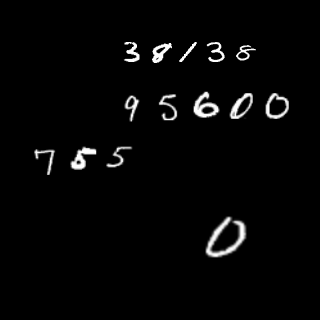 38/38
95600
755
0